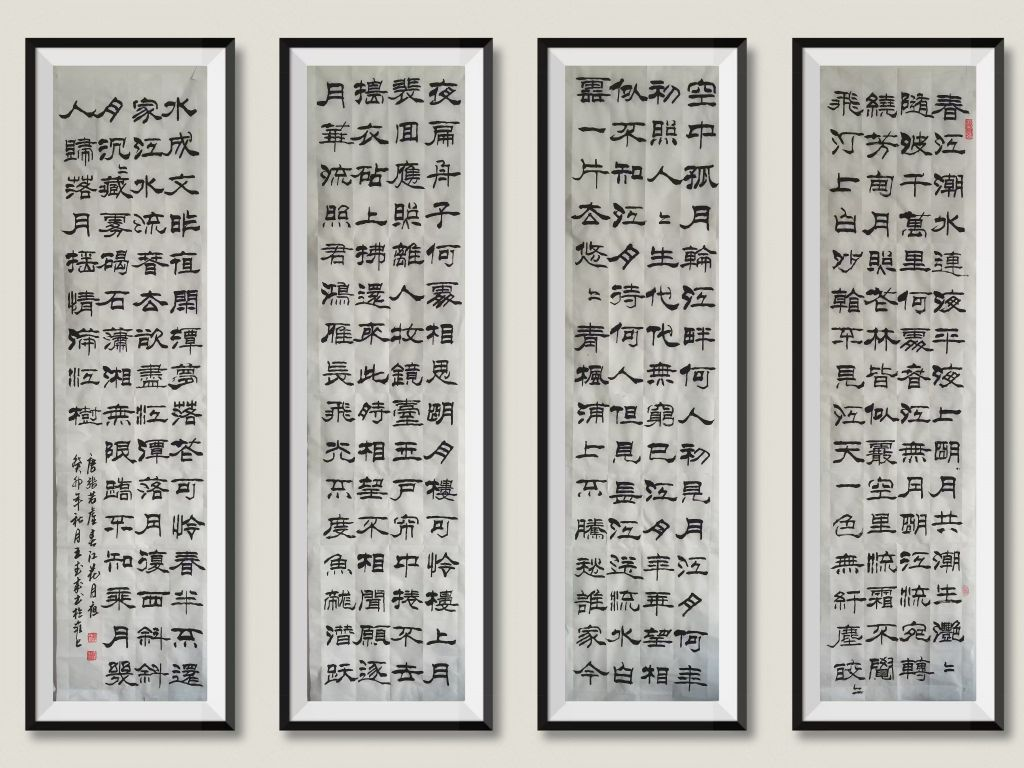 春江潮水連海平海上明月共潮生灩〻
隨波千萬里何處春江無月明江流宛轉
繞芳甸月照花林皆似霰空里流霜不覺
飛汀上白沙看不見江天一色無纤塵皎〻
空中孤月輪江畔何人初見月江月何年
初照人〻生代代無窮已江月年年望相
似不知江月待何人但見長江送流水白
雲一片去悠〻青楓浦上不勝愁誰家今
夜扁舟子何處相思明月樓可憐樓上月
裴回應照離人妝鏡臺玉戶帘中捲不去
擣衣砧上拂還來此時相望不相聞願逐
月華流照君鴻雁長飛光不度魚龍潛躍
水成文昨夜閑潭夢落花可憐春半不還
家江水流春去欲盡江潭落月復西斜斜
月沉〻藏霧碣石瀟湘無限路不知乘月幾
人歸落月搖情滿江樹
唐張若虛春江花月夜
癸卯年